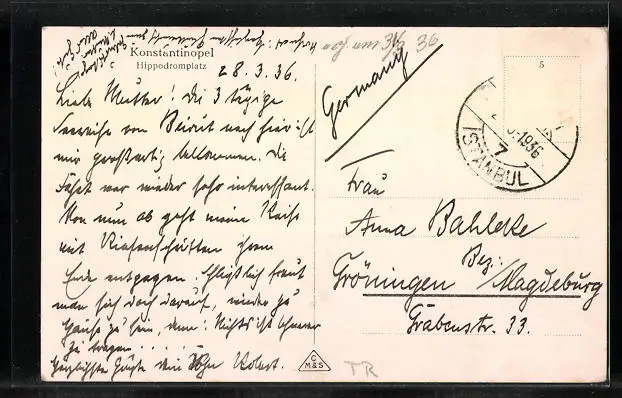 Konstantinopel
Hippodromplatz
28.3.36.
Liebe Mutter! Die 3 tägige
Seereise von Beirut nach hier ist
mir großartig bekommen. Die
Fahrt war wieder sehr interessant.
Von nun ab geht meine Reise
mit Riesenschritten ihrem
Ende entgegen. Schließlich freut
man sich doch darauf, wieder zu
Hause zu sein, denn: Nichts ist schwerer
zu tragen.....
Herzlichste Grüße dein Sohn Robert.
36
Germany
5
1936
7
ISTANBUL
Frau
Anna Bahleke
Bez:
Gröningen / Magdeburg
Grabenstr. 33.
C
M&S
TR